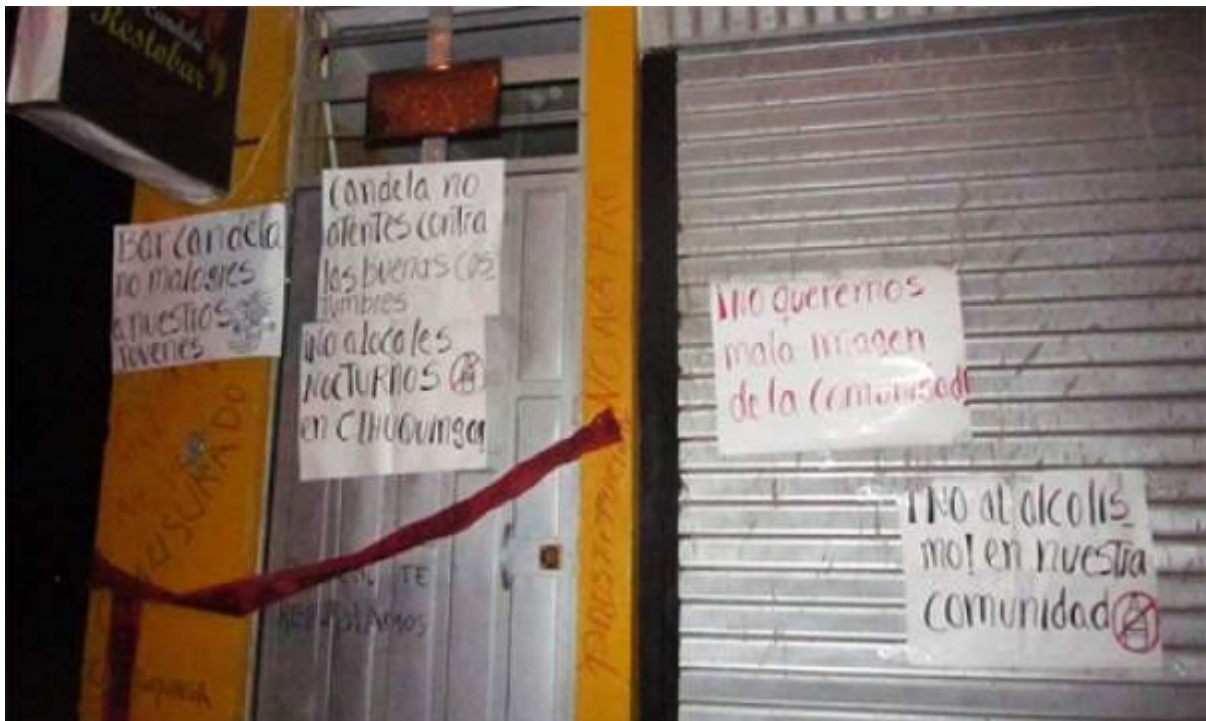 Candela
Restobar
Bar candela
no malogres
a nuestros
Jovenes
Candela no
atentes contra
las buenas cos
tumbres
¡No a locales
NOCTURNOS
en CHUQUINGA
¡NO queremos
mala imagen
de la comunidad!
¡NO al alcolis
mo! en nuestra
comunidad
CLAUSURADO
TE